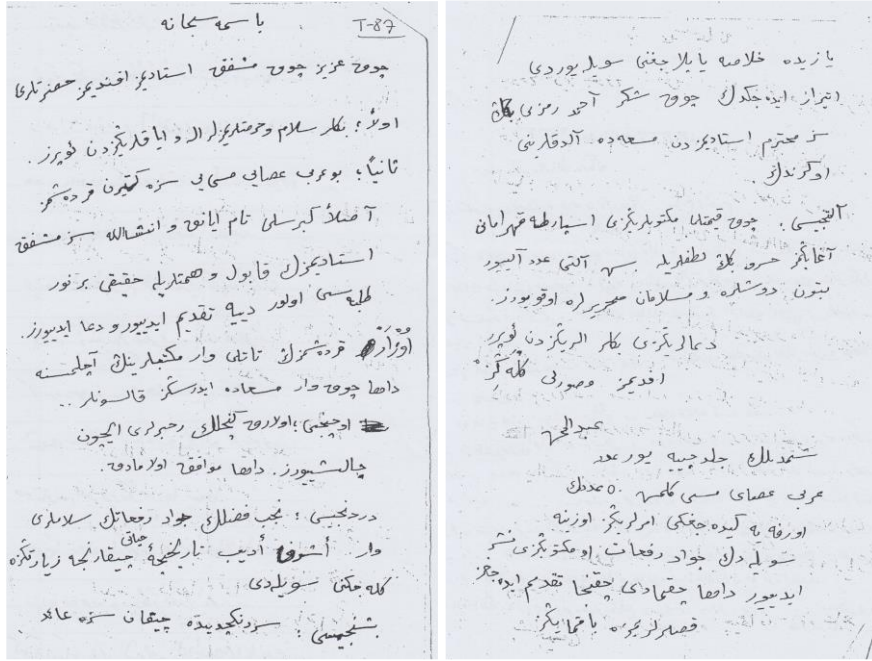 باسمه سبحانه
T-87
چوق عزیز چوق مشفق استادیمز افندیمز حضرتلری
اولاً؛ بکار سلام و حرمتلریمزله ال و ایاقلریکزدن ئوپرز.
ثانیاً؛ بو عربی عصایی موسایی سزه کتیرن قرده‌شمز
آصلاً کبرسلی تام ایانق و انشاالله سز مشفق
استادیمزك قابول و همتلریله حقیقی بر نور
طلبه‌سی اولور دییه تقدیم ایدییور و دعا ایدییورز.
قرده‌شمزك تاتلی وار مکتبلرینك آچلمسنه
داها چوق وار مساعده ایدرسکز قالسونلر..
اوچنجی؛ اولارق کنجلك رهبرلری ایچون
چالیشییورز. داها موافق اولامادق.
دردنجیسی؛ نجیب فضللك جواد رفعاتك سلاملری
وار. أشرف أدیب تاریخچهٔ حیاتی چیقارنجه زیارتکزه
کله‌جکنی سویله‌دی
بشنجیسی؛ سردنکچدیده چیقان سزه عائد
یازیده خلاصه یاپیلاجغنی سویله‌یوردی
اعتراز ایده‌جکدك چوق شکر آحمد رمزی بکك
سز محترم استادیمزدن مساعده آلدقلرینی
اوکرندك.
آلتنجیسی؛ چوق قیمتلی مکتوبلریکزی اسپارطه قهرامانی
آغابکمز خسرو بکك لطفلریله بش آلتی عدد آلییور
بتون دوستلره و مسلامان محررلره اوقویورز.
دعالریکزی بکلر اللریکزدن ئوپرز
افدیمز
عبدالمحسن
شمدیلك جلدجییه یوز عدد
عربی عصای موسی کلمش ٥٠ عددك
اورفه یه کیده‌جغنی امرلریکز اوزرینه
سویله‌دك جواد رفعات او مکتوبکزی نشر
ایدییور داها چقمادی چقنجا تقدیم ایده‌جکز
قصورلریمزه باقمایکز